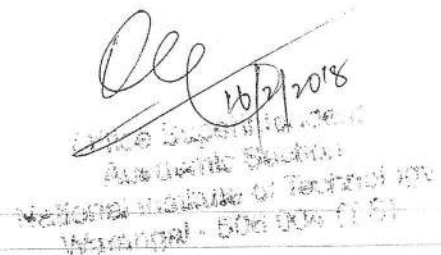 16/2/2018
Office Superintendent
Academic Section
National Institute of Technology
Warangal - 506 004